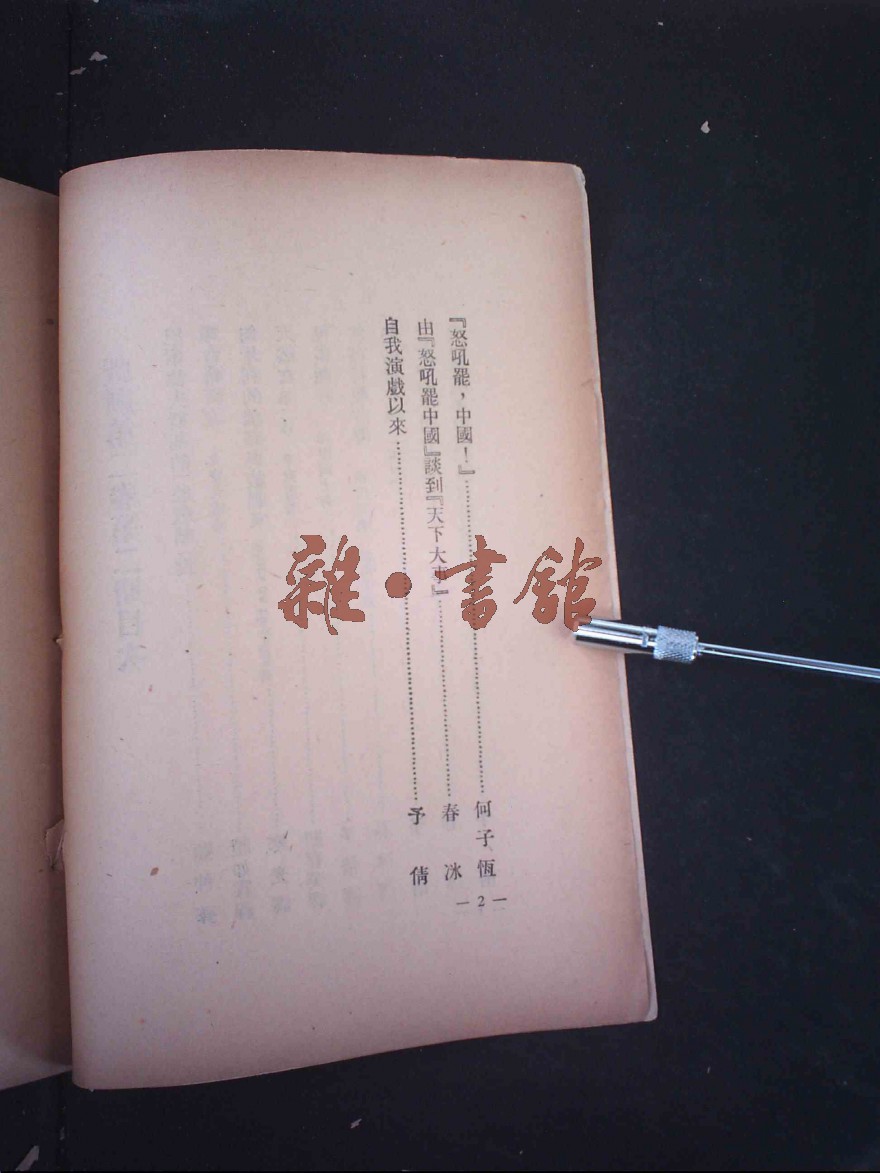 『怒吼罷，中國！』⋯⋯⋯⋯⋯⋯何子恆
由『怒吼罷中國』談到『天下大事』⋯⋯⋯⋯⋯⋯春冰
自我演戲以來⋯⋯⋯⋯⋯⋯予倩
— 2 —
雜·書館